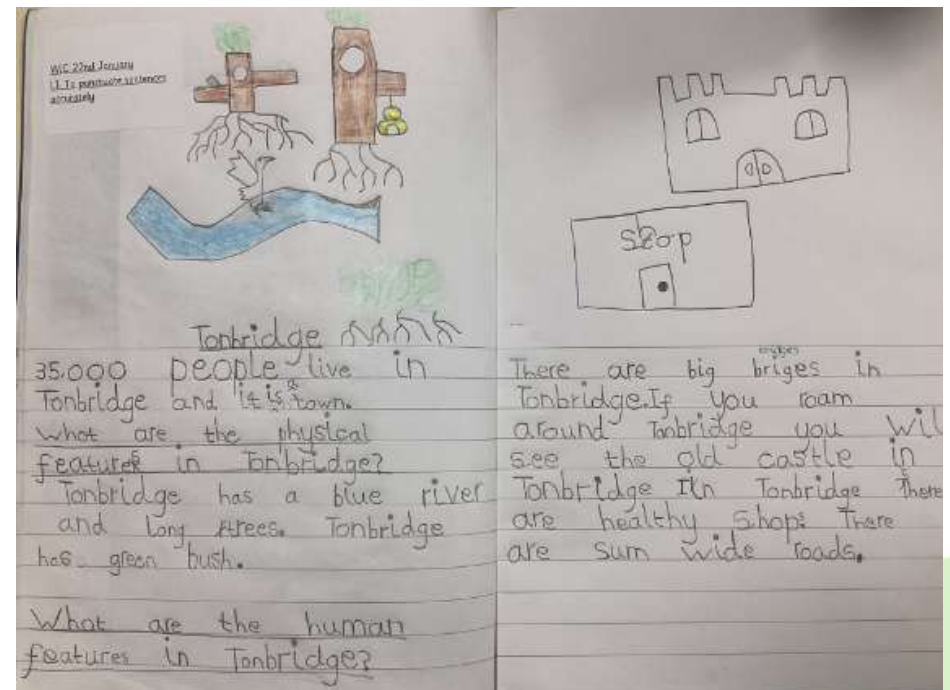 W/C 22nd January
L.I. To punctuate sentences
accurately
Tonbridge
35.000 people live in
Tonbridge and it is a town.
What are the physical
features in Tonbridge?
Tonbridge has a blue river
and long trees. Tonbridge
has green bush.
What are the human
features in Tonbridge?
Shop
There are big briges in
Tonbridge. If you roam
around Tonbridge you wil
see the old castle in
Tonbridge In Tonbridge there
are healthy shops There
are sum wide roads.